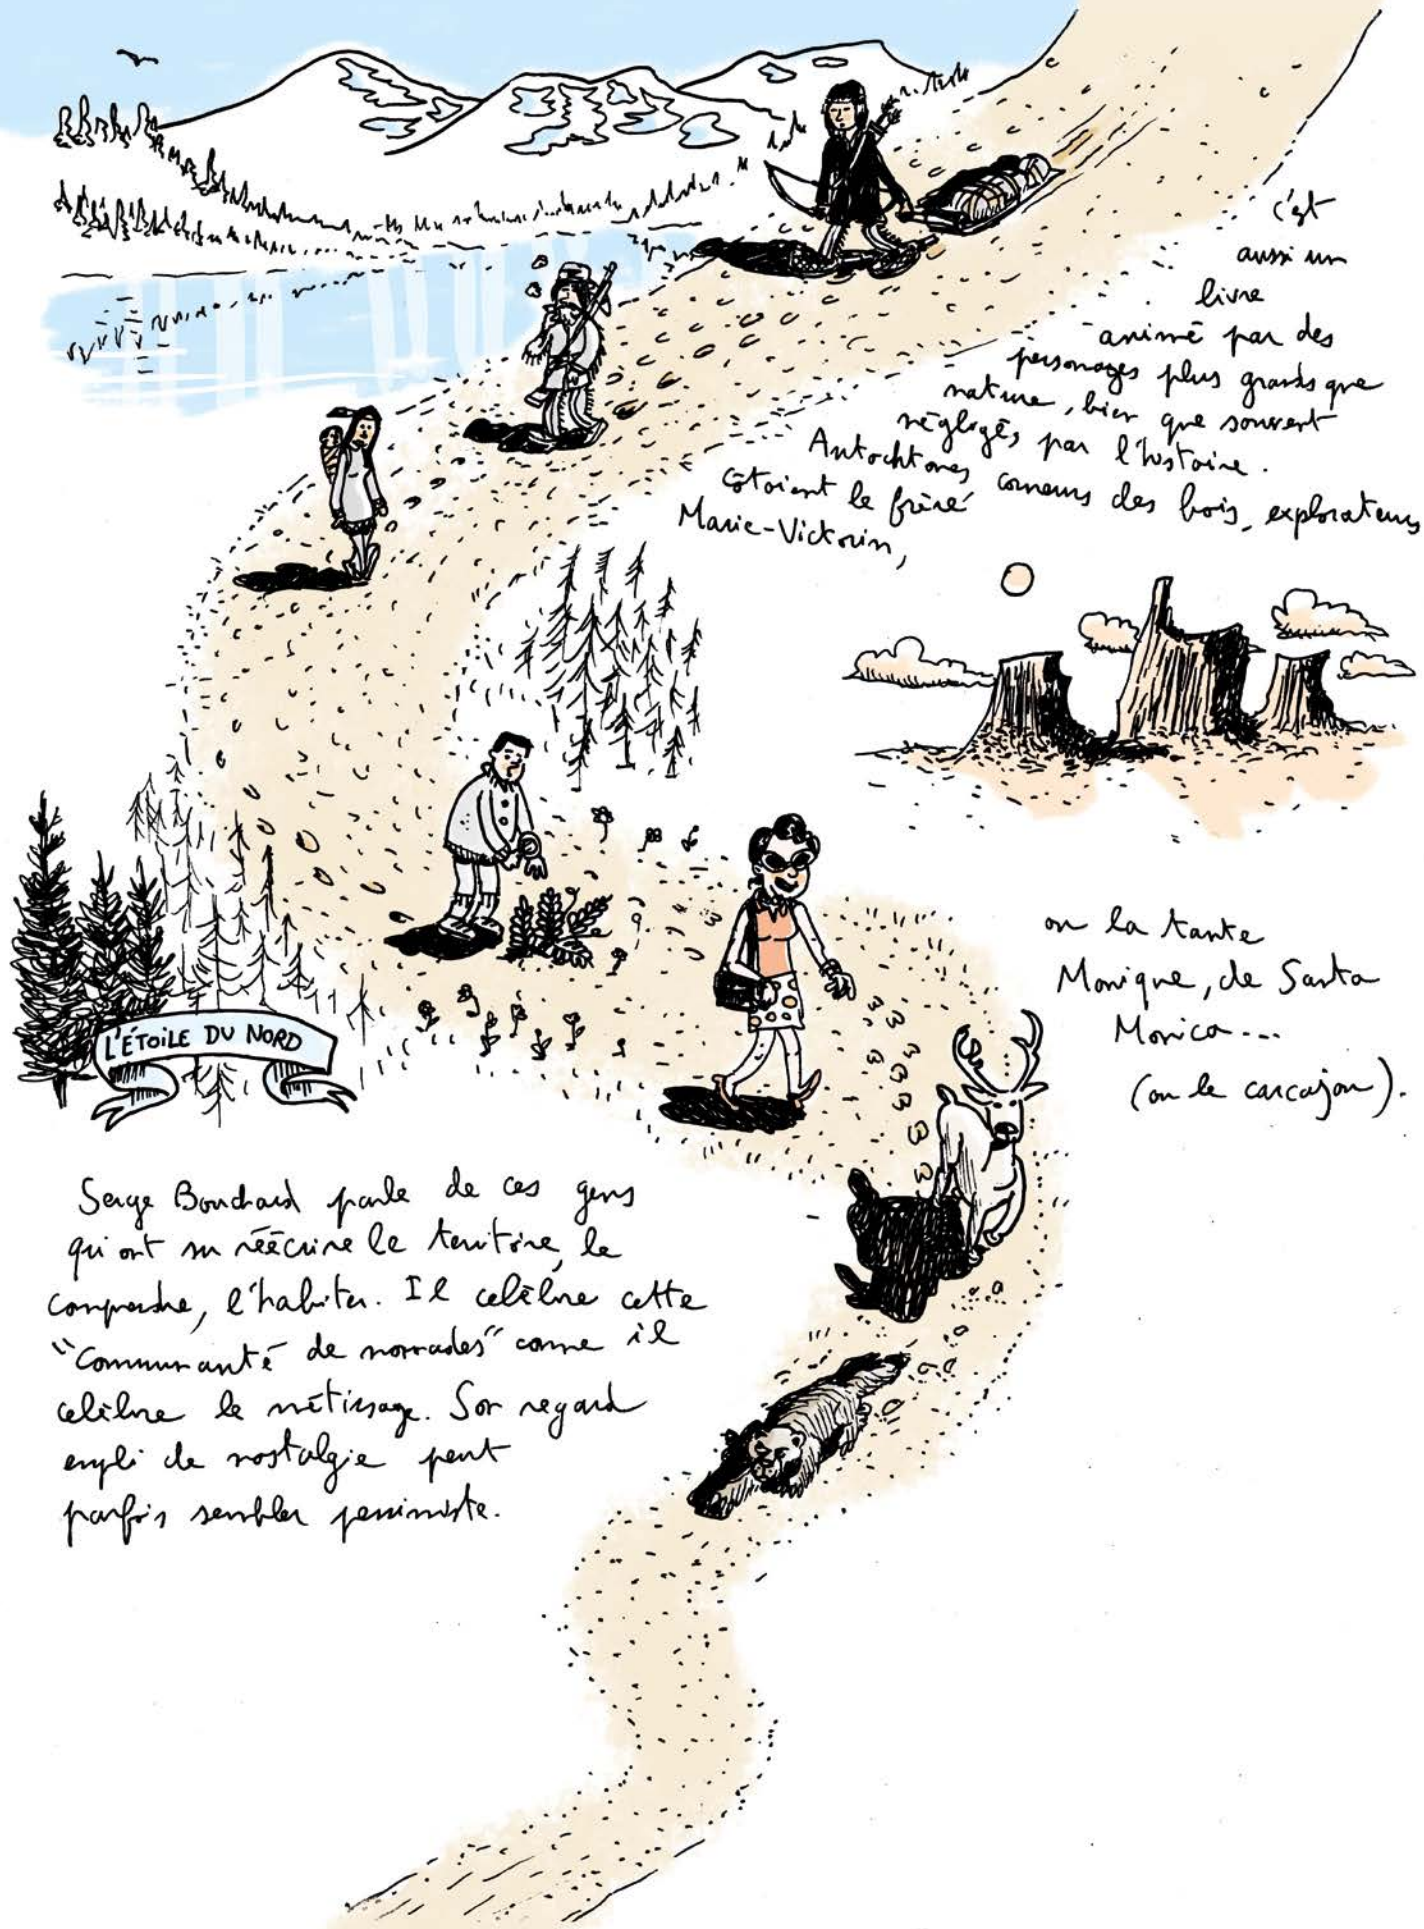 c'est
aussi un
livre
animé par des
personages plus grands que
nature, bien que souvent
négligés, par l'histoire.
Autochtones coureurs des bois, explorateurs
côtoient le frère
Marie-Victorin,
ou la tante
Monique, de Santa
Monica...
(ou le carcajou).
L'ÉTOILE DU NORD
Serge Bouchard parle de ces gens
qui ont su réécrire le territoire, le
comprendre, l'habiter. Il célèbre cette
"Communauté de nomades" comme il
célèbre le métissage. Son regard
empli de nostalgie peut
parfois sembler pessimiste.